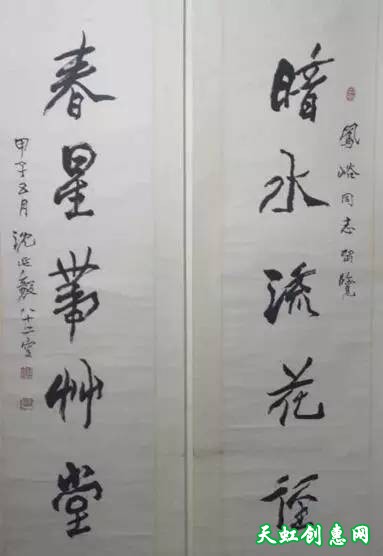 鳳峪同志留覽
暗水流花徑
春星帶艸堂
甲子五月沈延毅八十二叟
天虹创意网